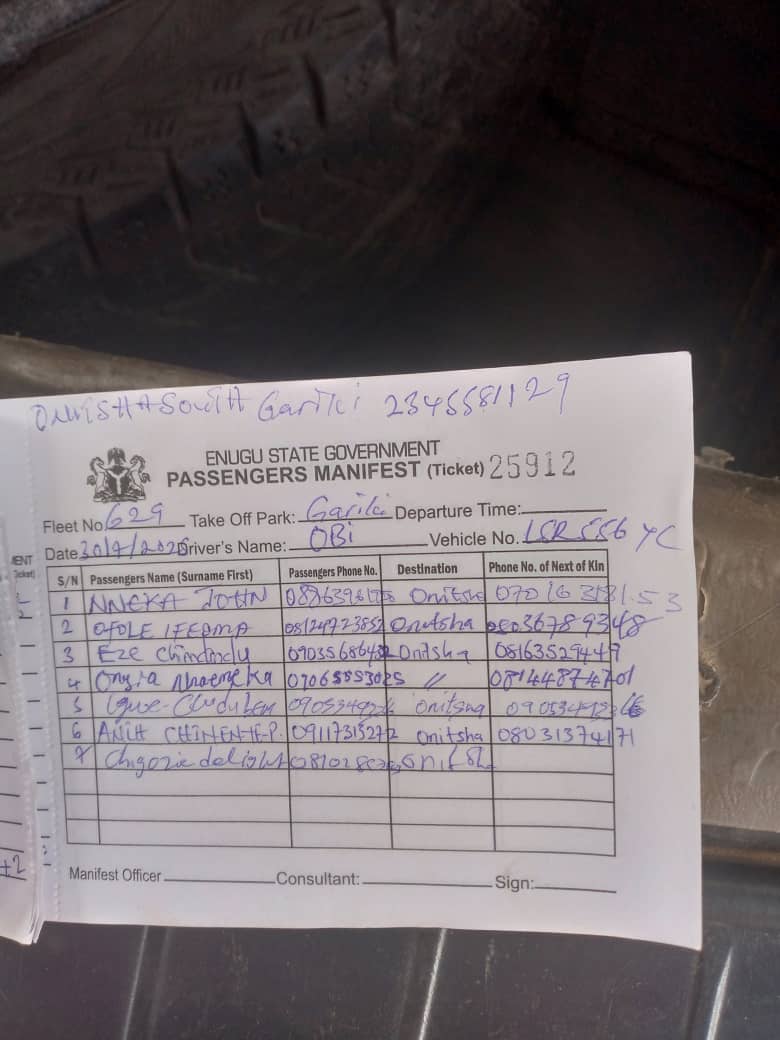 ONITSHA SOUTH Gariki 2345581129
ENUGU STATE GOVERNMENT
PASSENGERS MANIFEST (Ticket) 25912
Fleet No 629 Take Off Park: Gariki Departure Time:
Date 30/9/2025 Driver's Name: OBi Vehicle No. LSR 556 YC
S/N Passengers Name (Surname First) Passengers Phone No. Destination Phone No. of Next of Kin
1 NNEKA JOHN Onitsha
2 OFOLE IFEOMA 08124723852 Onitsha
3 Eze 09035686482 Onitsha 08163529449
4 07065853025 " 08144874701
5 Onitsha
6 ANIH 09117313272 Onitsha 08031374171
7 Chigozie delight Onitsha
Manifest Officer Consultant: Sign:
MENT
Ticket)
+2